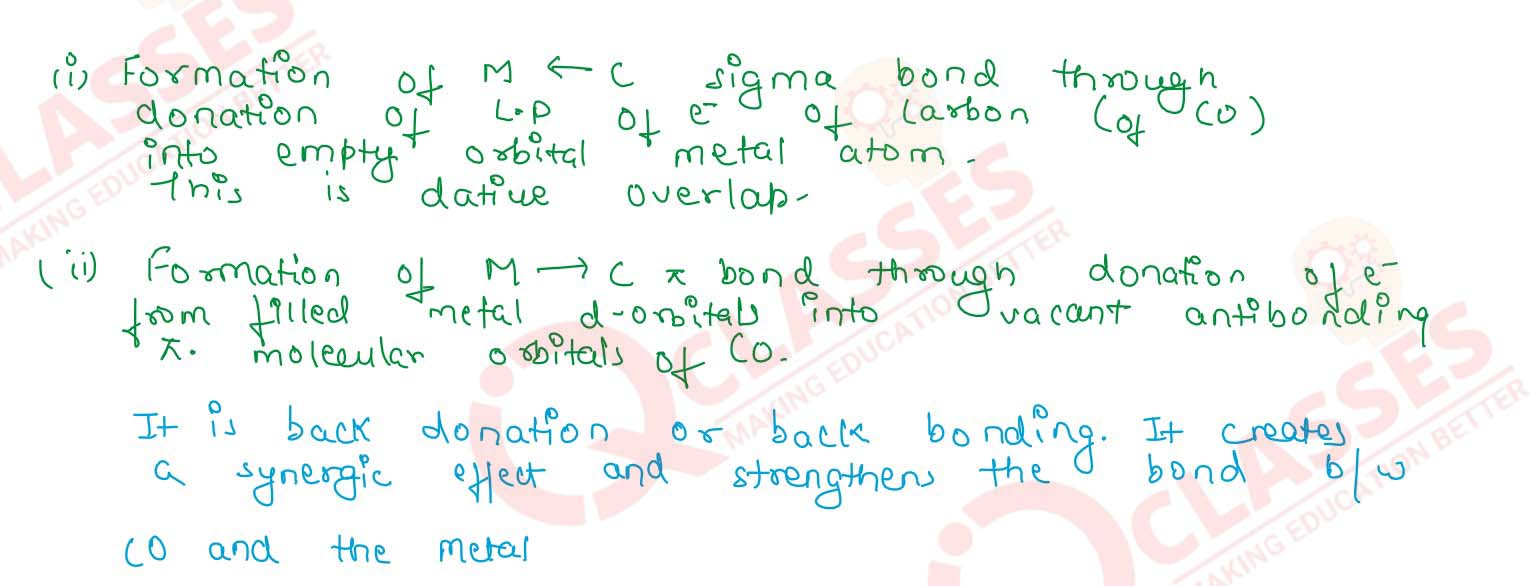 (i) Formation of M ← C sigma bond through
donation of L.P of e⁻ of Carbon (of CO)
into empty orbital of metal atom.
This is dative overlap.
(ii) Formation of M → C π bond through donation of e⁻
from filled metal d-orbitals into vacant antibonding
π. molecular orbitals of CO.
It is back donation or back bonding. It creates
a synergic effect and strengthens the bond b/w
CO and the metal
CLASSES
MAKING EDUCATION BETTER
CLASSES
MAKING EDUCATION BETTER
CLASSES
MAKING EDUCATION BETTER